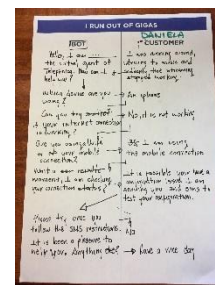 I RUN OUT OF GIGAS
DANIELA
IBOT
1st CUSTOMER
Hello, I am .....
the virtual agent of
Telephonica. How can I
help you?
I was driving around,
listening to music and
suddenly the streaming
stopped working.
What device are you
using?
An iphone
Can you try
if your internet connection
is working?
No, it is not working
Are you using
or your mobile
connection?
I am using
the mobile connection
Wait a
moment, I am checking
your connection status?
It is possible you have a
I am
sending you and sms to
test your configuration.
Please try once you
follow the SMS instructions.
No
It is been a pleasure to
help you. Anything else?
Have a nice day